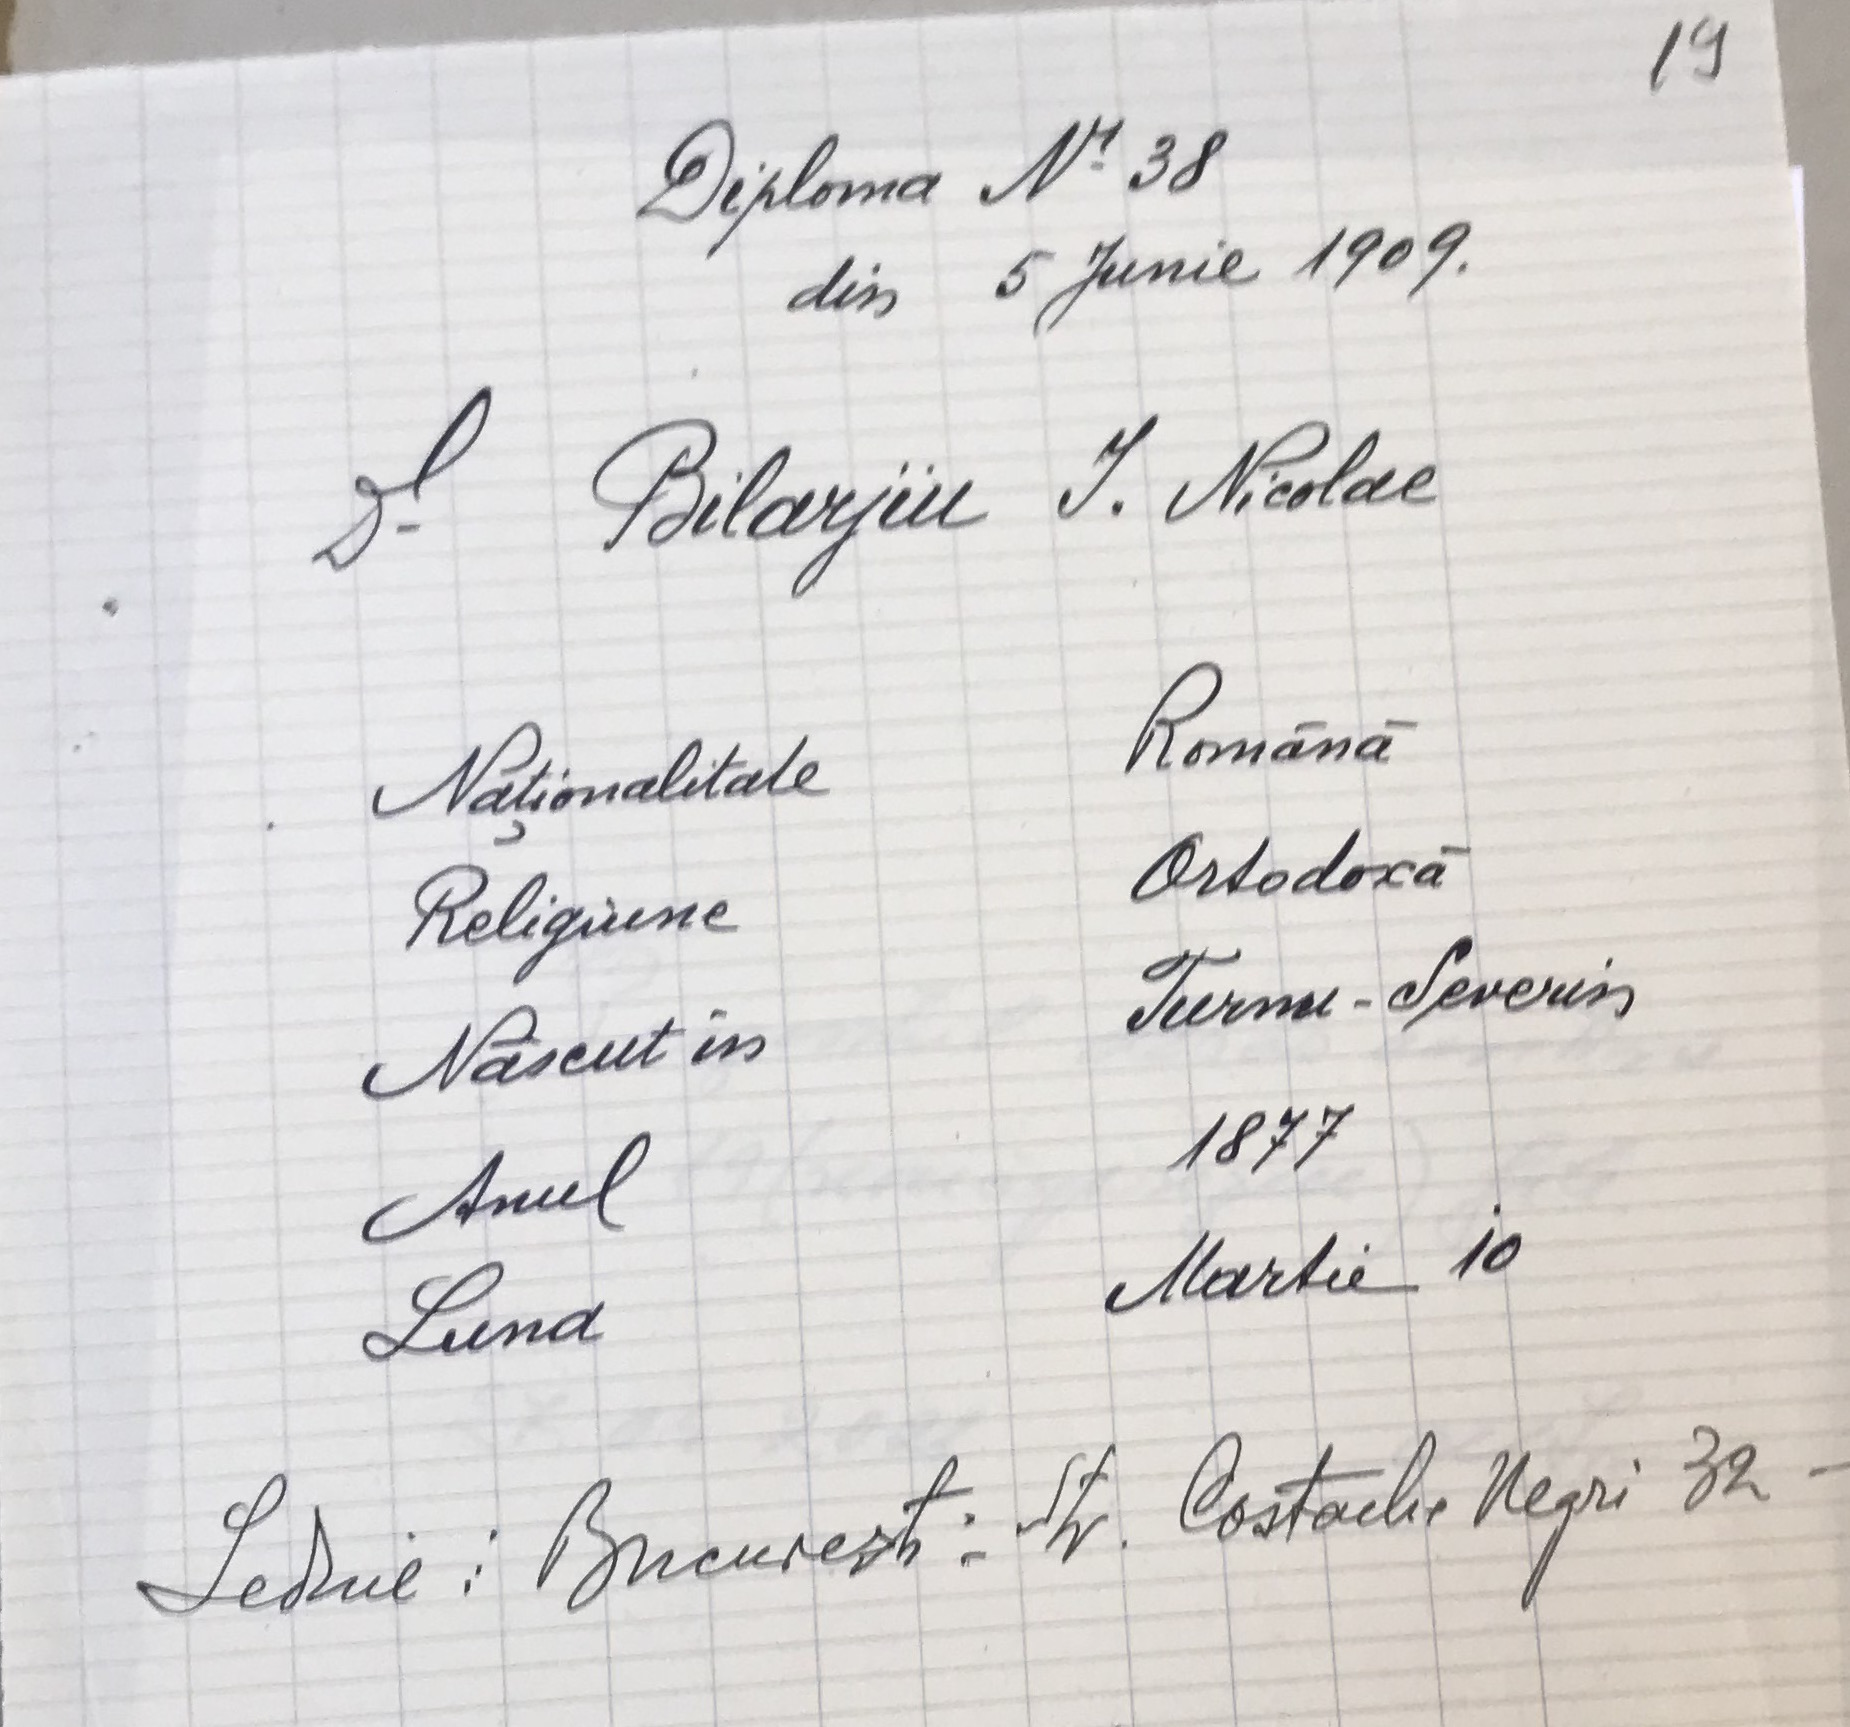 19
Diploma Nr. 38
din 5 Junie 1909.
Dl Bilarjiu I. Nicolae
Naționalitate Română
Religiune Ortodoxă
Născut în Turnu-Severin
Anul 1877
Luna Martie 10
București: Str. Costache Negri 32 -